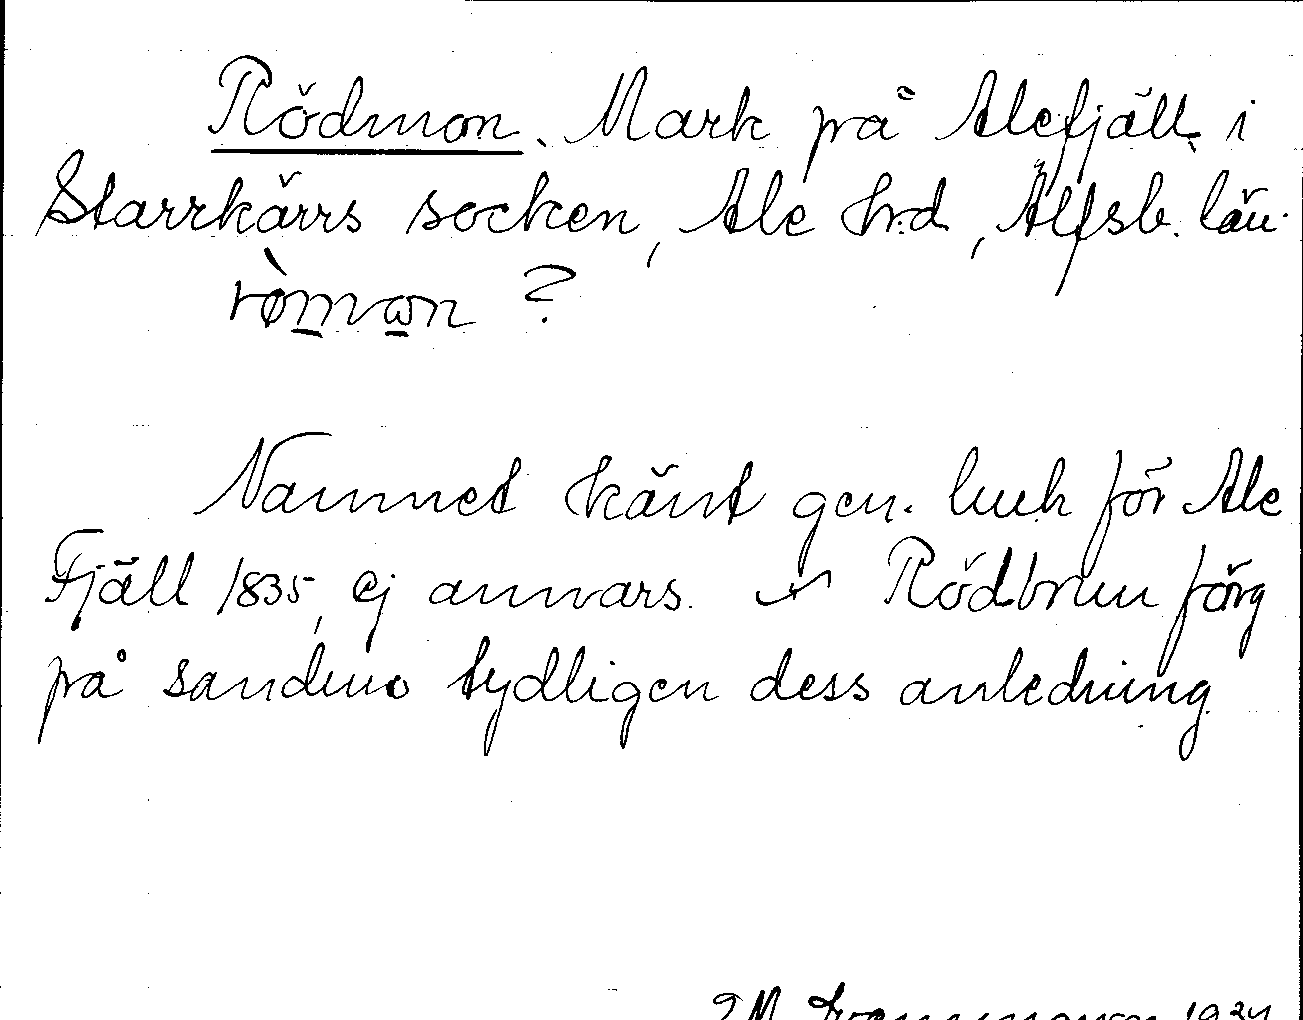 Rödmon. Mark på Alefjäll, i
Starrkärrs socken, Ale hrd, Älfsb. län.
ròmɷn ?
Namnet känt gen. luck för Ale
Fjäll 1835, ej annars. Rödbrun färg
på sandmo tydligen dess anledning.